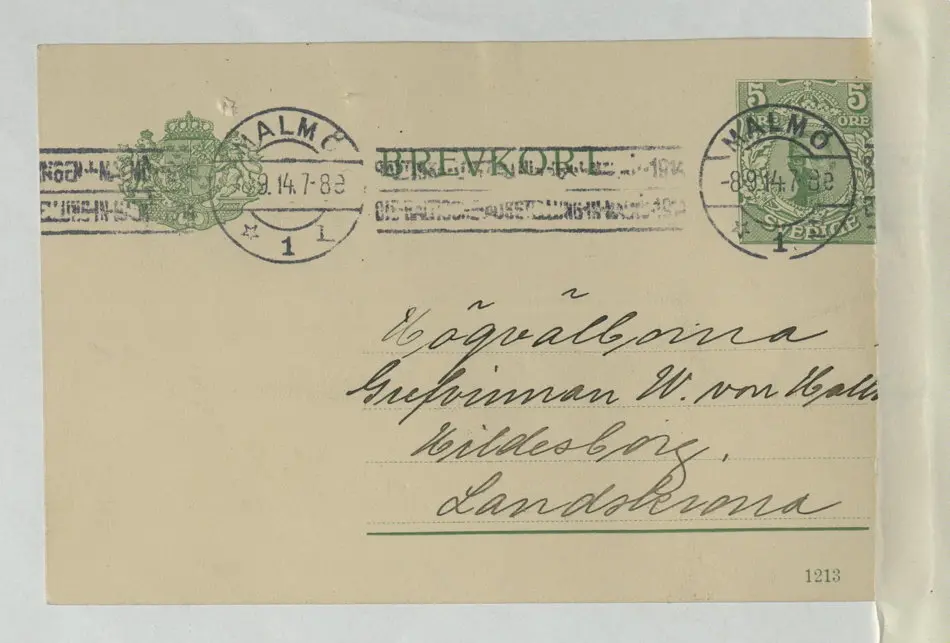 MALMÖ
9.14.7-8e
1 L
BREVKORT
DIE BALTISCHE AUSSTELLUNG-IN-MALMÖ-1914
MALMÖ
-8.9.14.7-8e
1
5 5
ÖRE ÖRE
SVERIGE
Högvälborna
Grefvinnan W. von
Hildesborg.
Landskrona
1213